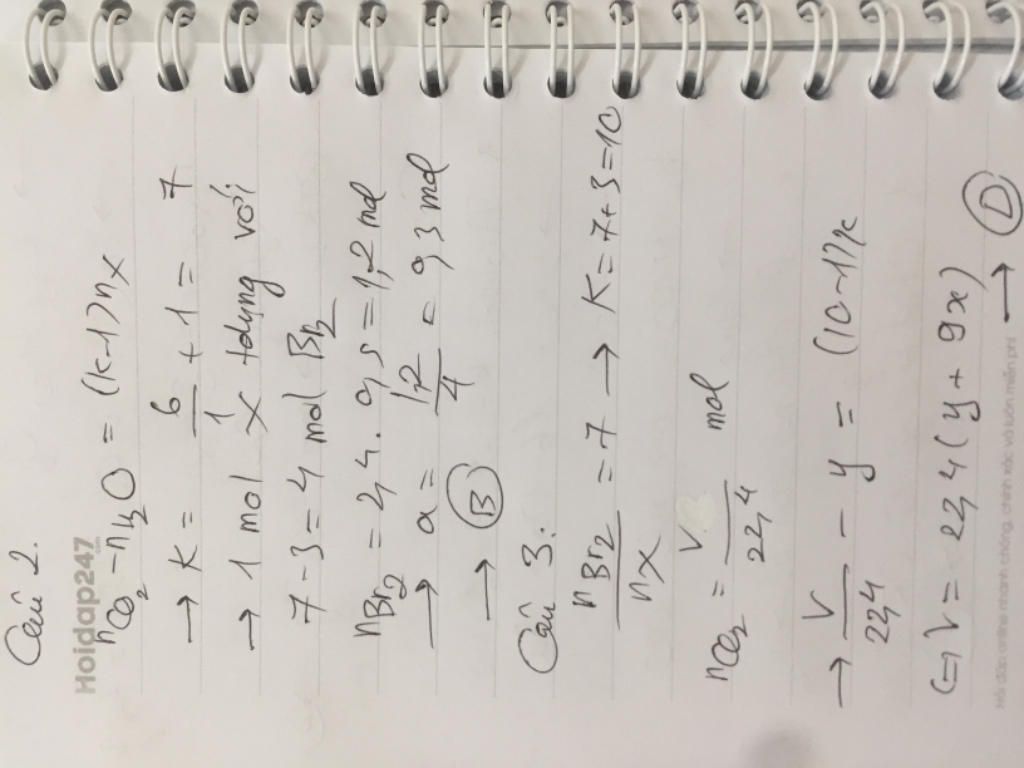 Câu 2.
Hoidap247
.com
nCO2 - nH2O = (k-1)nX
→ K = 6/1 + 1 = 7
→ 1 mol X tdụng với
7-3 = 4 mol Br2
nBr2 = 2,4. 0,5 = 1,2 mol
→ a = 1,2/4 = 0,3 mol
→ B
Câu 3.
nBr2/nX = 7 → K = 7+3 = 10
nCO2 = V/22,4 mol
→ V/22,4 - y = (10-1)x
(=) V = 22,4(y + 9x)
Hỏi đáp online nhanh chóng, chính xác và luôn miễn phí
→ D